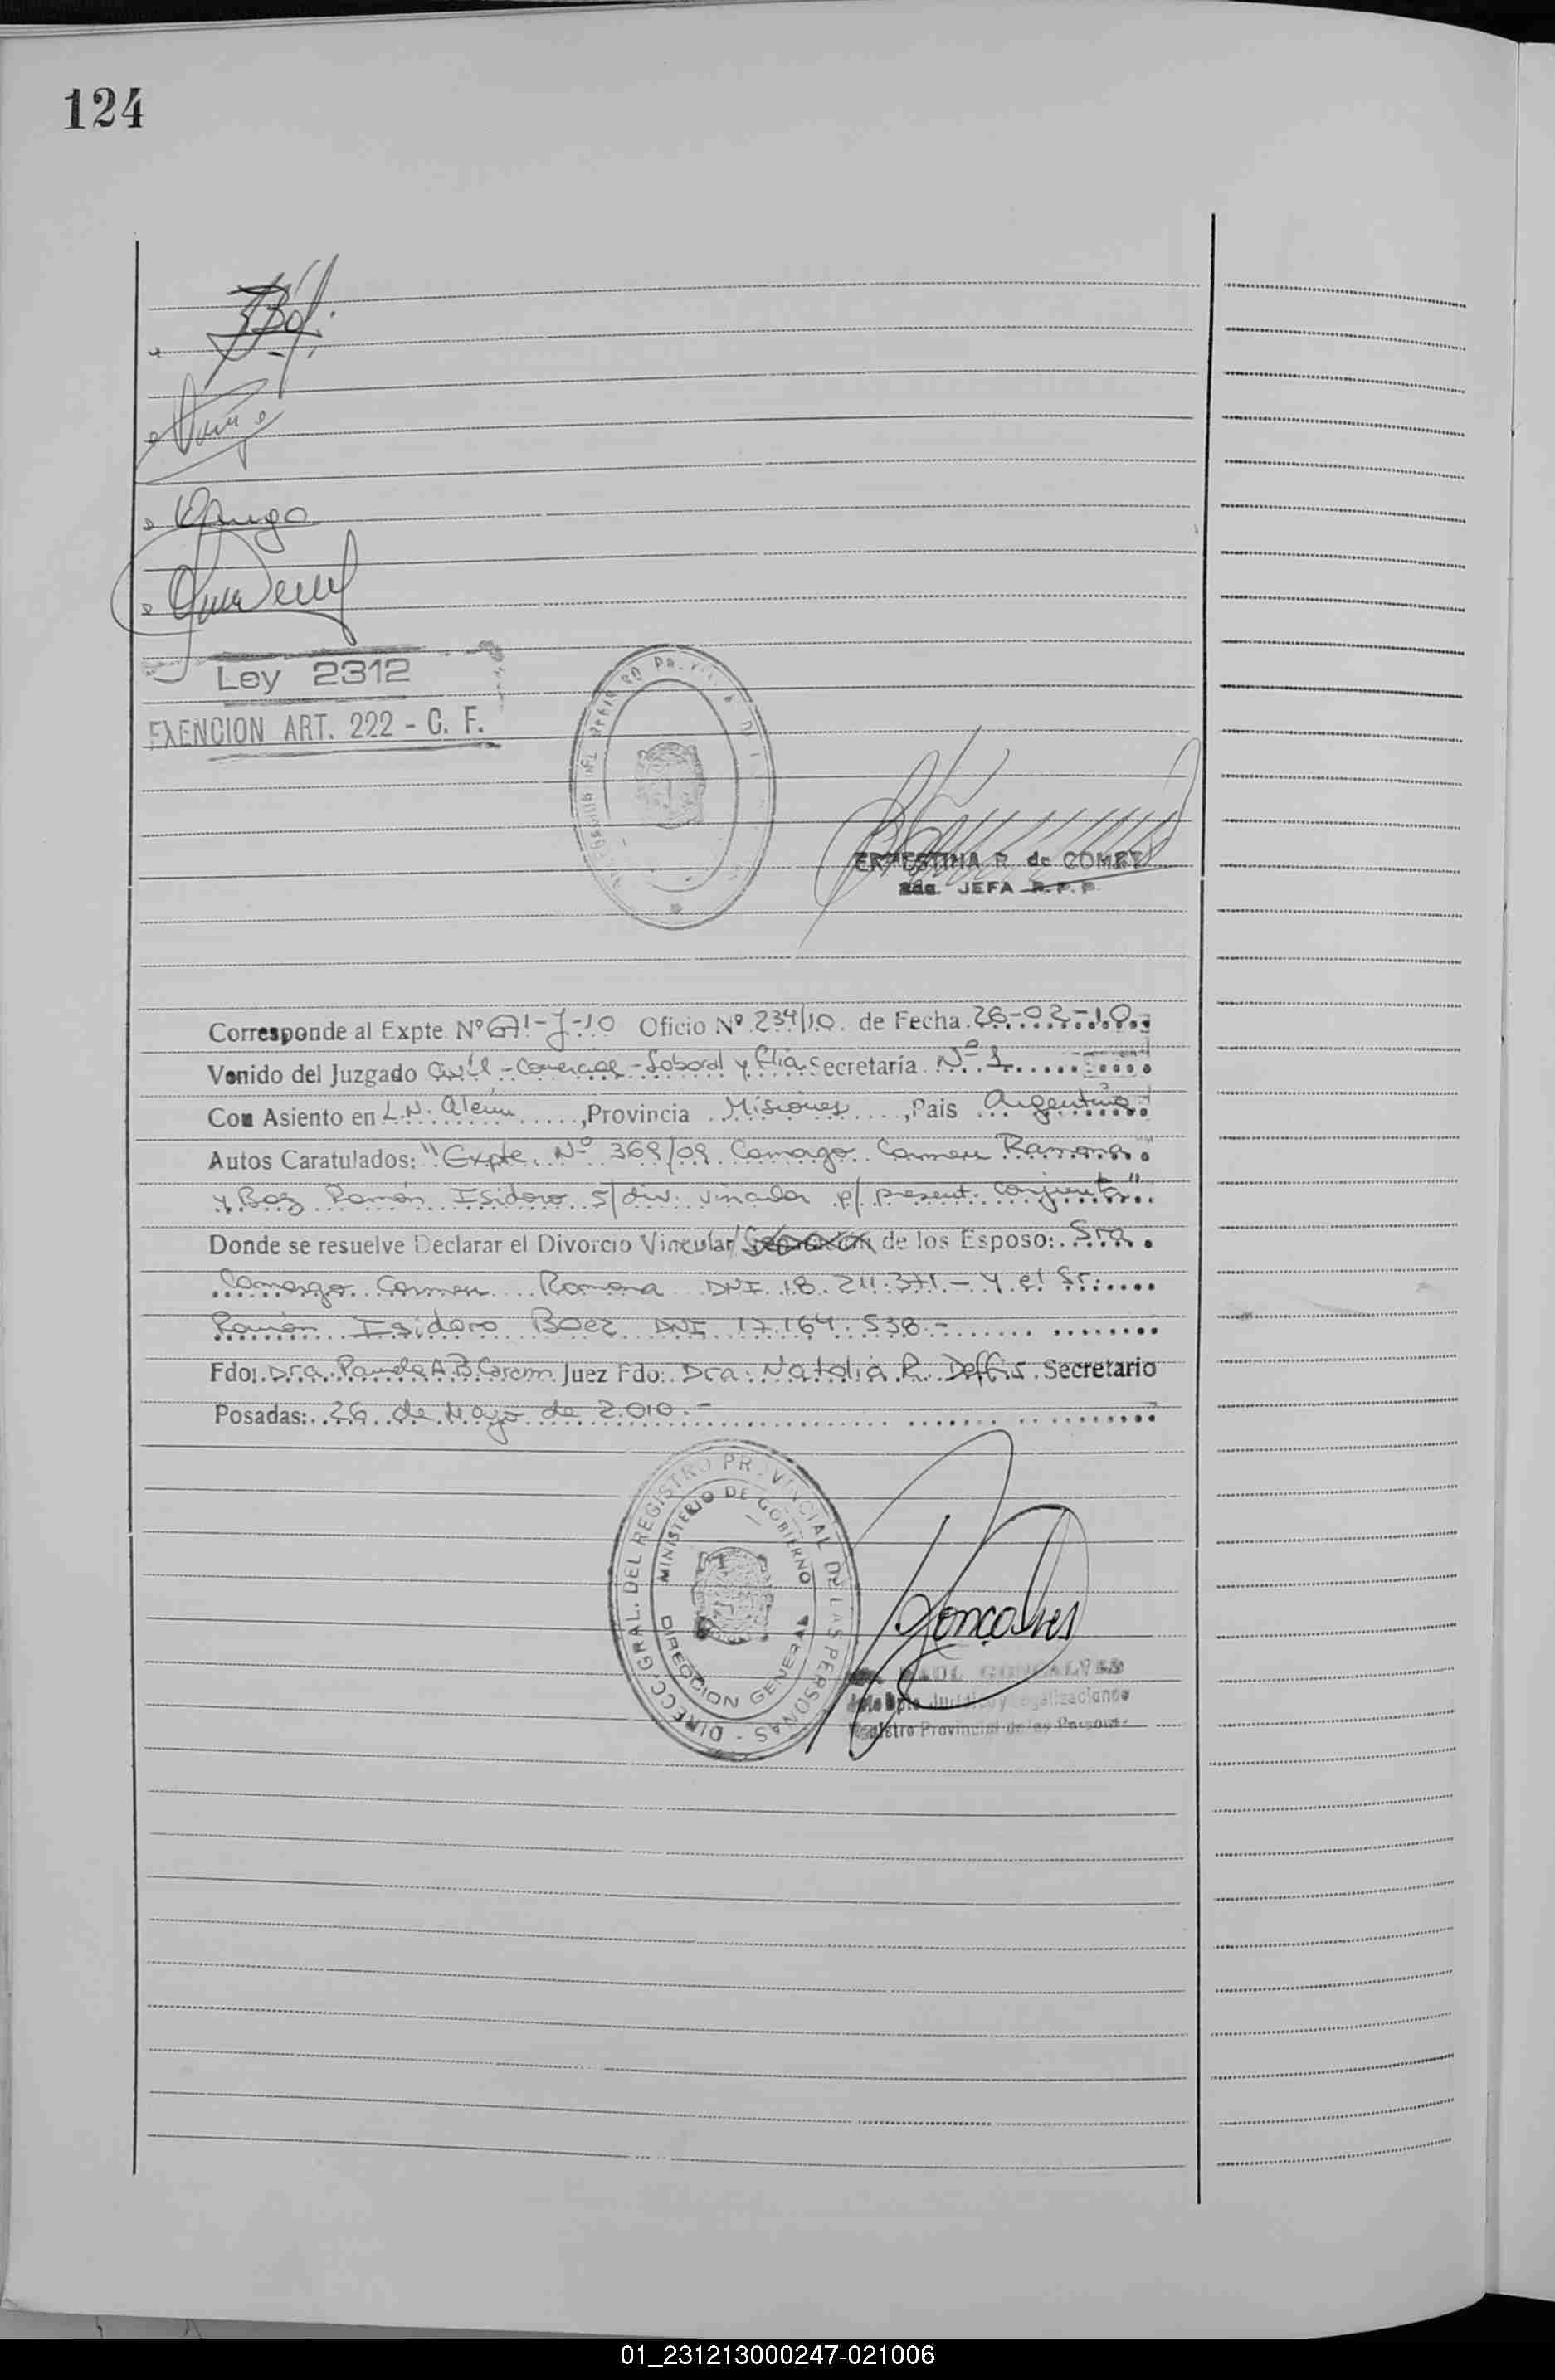 124
Ley 2312
EXENCION ART. 222 - C. F.
ERNESTINA R. de COMET
2da. JEFA R.P.P.
Corresponde al Expte Nº 671-J-10 Oficio Nº 234/10. de Fecha 26-02-10
Venido del Juzgado Civil - Comercial - Laboral y flia Secretaría Nº 1
Con Asiento en L.N. Alem, Provincia Misiones, Pais Argentina
Autos Caratulados: "Expte. Nº 369/09 Camargo Carmen Ramona
y Baez Ramón Isidoro s/ div. vincular p/ present. conjunta"
Donde se resuelve Declarar el Divorcio Vincular/ Separación de los Esposo: Sra.
Camargo Carmen Ramona DNI 18.211.371 - y el Sr.
Ramón Isidoro Baez DNI 17.164.538.-
Fdo: Dra. Pamela A. B. Juez Fdo: Dra. Natalia R. Deffis. Secretario
Posadas: 26 de Mayo de 2.010.-
DIRECC. GRAL. DEL REGISTRO PROVINCIAL DE LAS PERSONAS -
MINISTERIO DE GOBIERNO
DIRECCION GENERAL
Goncalves
RAUL GONCALVES
Jefe Dpto. Jurídico y Legalizaciones
Registro Provincial de las Personas
01_231213000247-021006